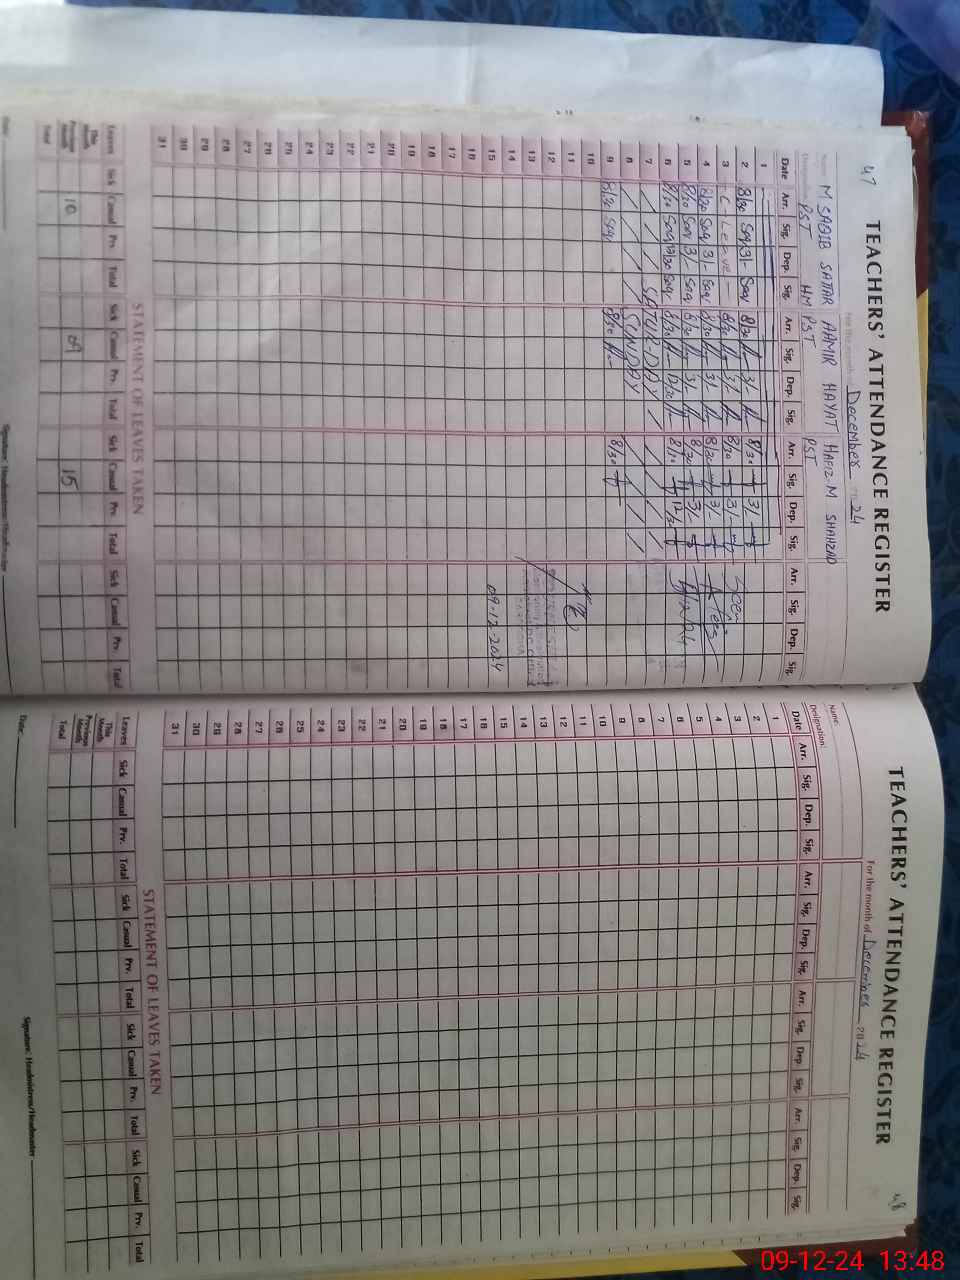 47
TEACHERS' ATTENDANCE REGISTER
For the month December 2024
Name: M SAQIB SATAR AAMIR HAYAT HAFIZ M SHAHZAD
Designation: PST HM PST PST
Date Arr. Sig. Dep. Sig. Arr. Sig. Dep. Sig. Arr. Sig. Dep. Sig. Arr. Sig. Dep. Sig.
1
2 8/30 Saqi 3/- Saqi 8/30 3/- 8/30 3/-
3 C-Leave 8/30 3/- 8/30 3/- Seen
4 8/30 Saqi 3/- Saqi 8/30 3/- 8/30 3/-
5 8/30 Saqi 3/- Saqi 8/30 3/- 8/30 3/-
6 8/30 Saqi 12/30 Saqi 8/30 12/30 8/30 12/30
7 SATURDAY
8 SUNDAY
9 8/30 Saqi 8/30 8/30
10
11
12
13
14
15 09-12-2024
16
17
18
19
20
21
22
23
24
25
26
27
28
29
30
31
STATEMENT OF LEAVES TAKEN
Leaves Sick Casual Prv. Total Sick Casual Prv. Total Sick Casual Prv. Total Sick Casual Prv. Total
This Month
Previous Month 10 09 15
Total
Date:
Signature: Headmistress/Headmaster
48
TEACHERS' ATTENDANCE REGISTER
For the month of December 2024
Name:
Designation:
Date Arr. Sig. Dep. Sig. Arr. Sig. Dep. Sig. Arr. Sig. Dep. Sig. Arr. Sig. Dep. Sig.
1
2
3
4
5
6
7
8
9
10
11
12
13
14
15
16
17
18
19
20
21
22
23
24
25
26
27
28
29
30
31
STATEMENT OF LEAVES TAKEN
Leaves Sick Casual Prv. Total Sick Casual Prv. Total Sick Casual Prv. Total Sick Casual Prv. Total
This Month
Previous Month
Total
Date:
Signature: Headmistress/Headmaster
09-12-24 13:48